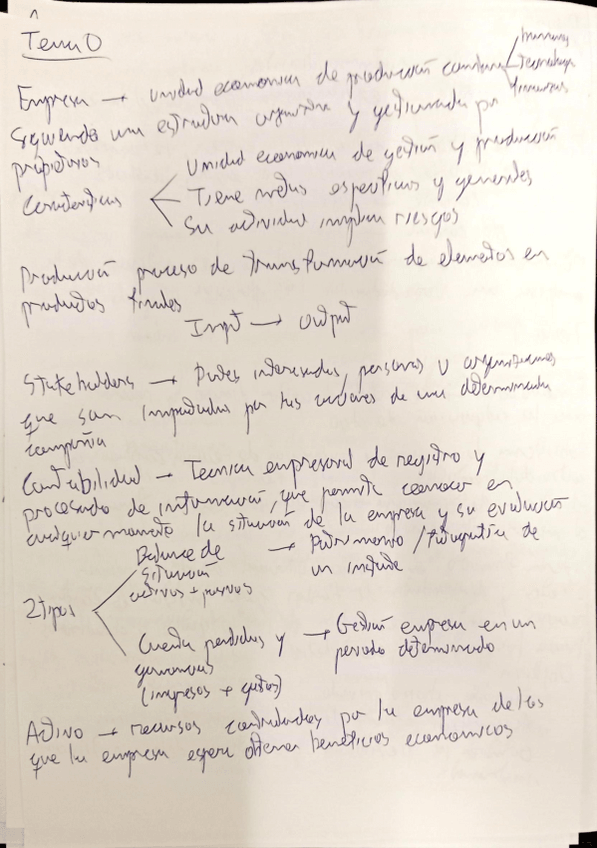 Tema 0
Empresa → unidad economica de producción combina
humanos
Tecnologicos
financieros
siguiendo una estructura organizativa y gestionada por
propietarios
Caracteristicas
Unidad economica de gestión y producción
Tiene metas especificas y generales
Su actividad implica riesgos
Producción proceso de transformación de elementos en
productos finales
Input → output
Stakeholders → Partes interesadas, personas u organizaciones
que son impactadas por las acciones de una determinada
compañia
Contabilidad → Tecnica empresarial de registro y
procesado de información, que permite conocer en
cualquier momento la situación de la empresa y su evolución
2 tipos
Balance de
situación
activos + pasivos
→ Patrimonio / fotografia de
un instante
Cuenta perdidas y
ganancias
(ingresos + gastos)
→ Gestión empresa en un
periodo determinado
Activo → recursos controlados por la empresa de los
que la empresa espera obtener beneficios economicos